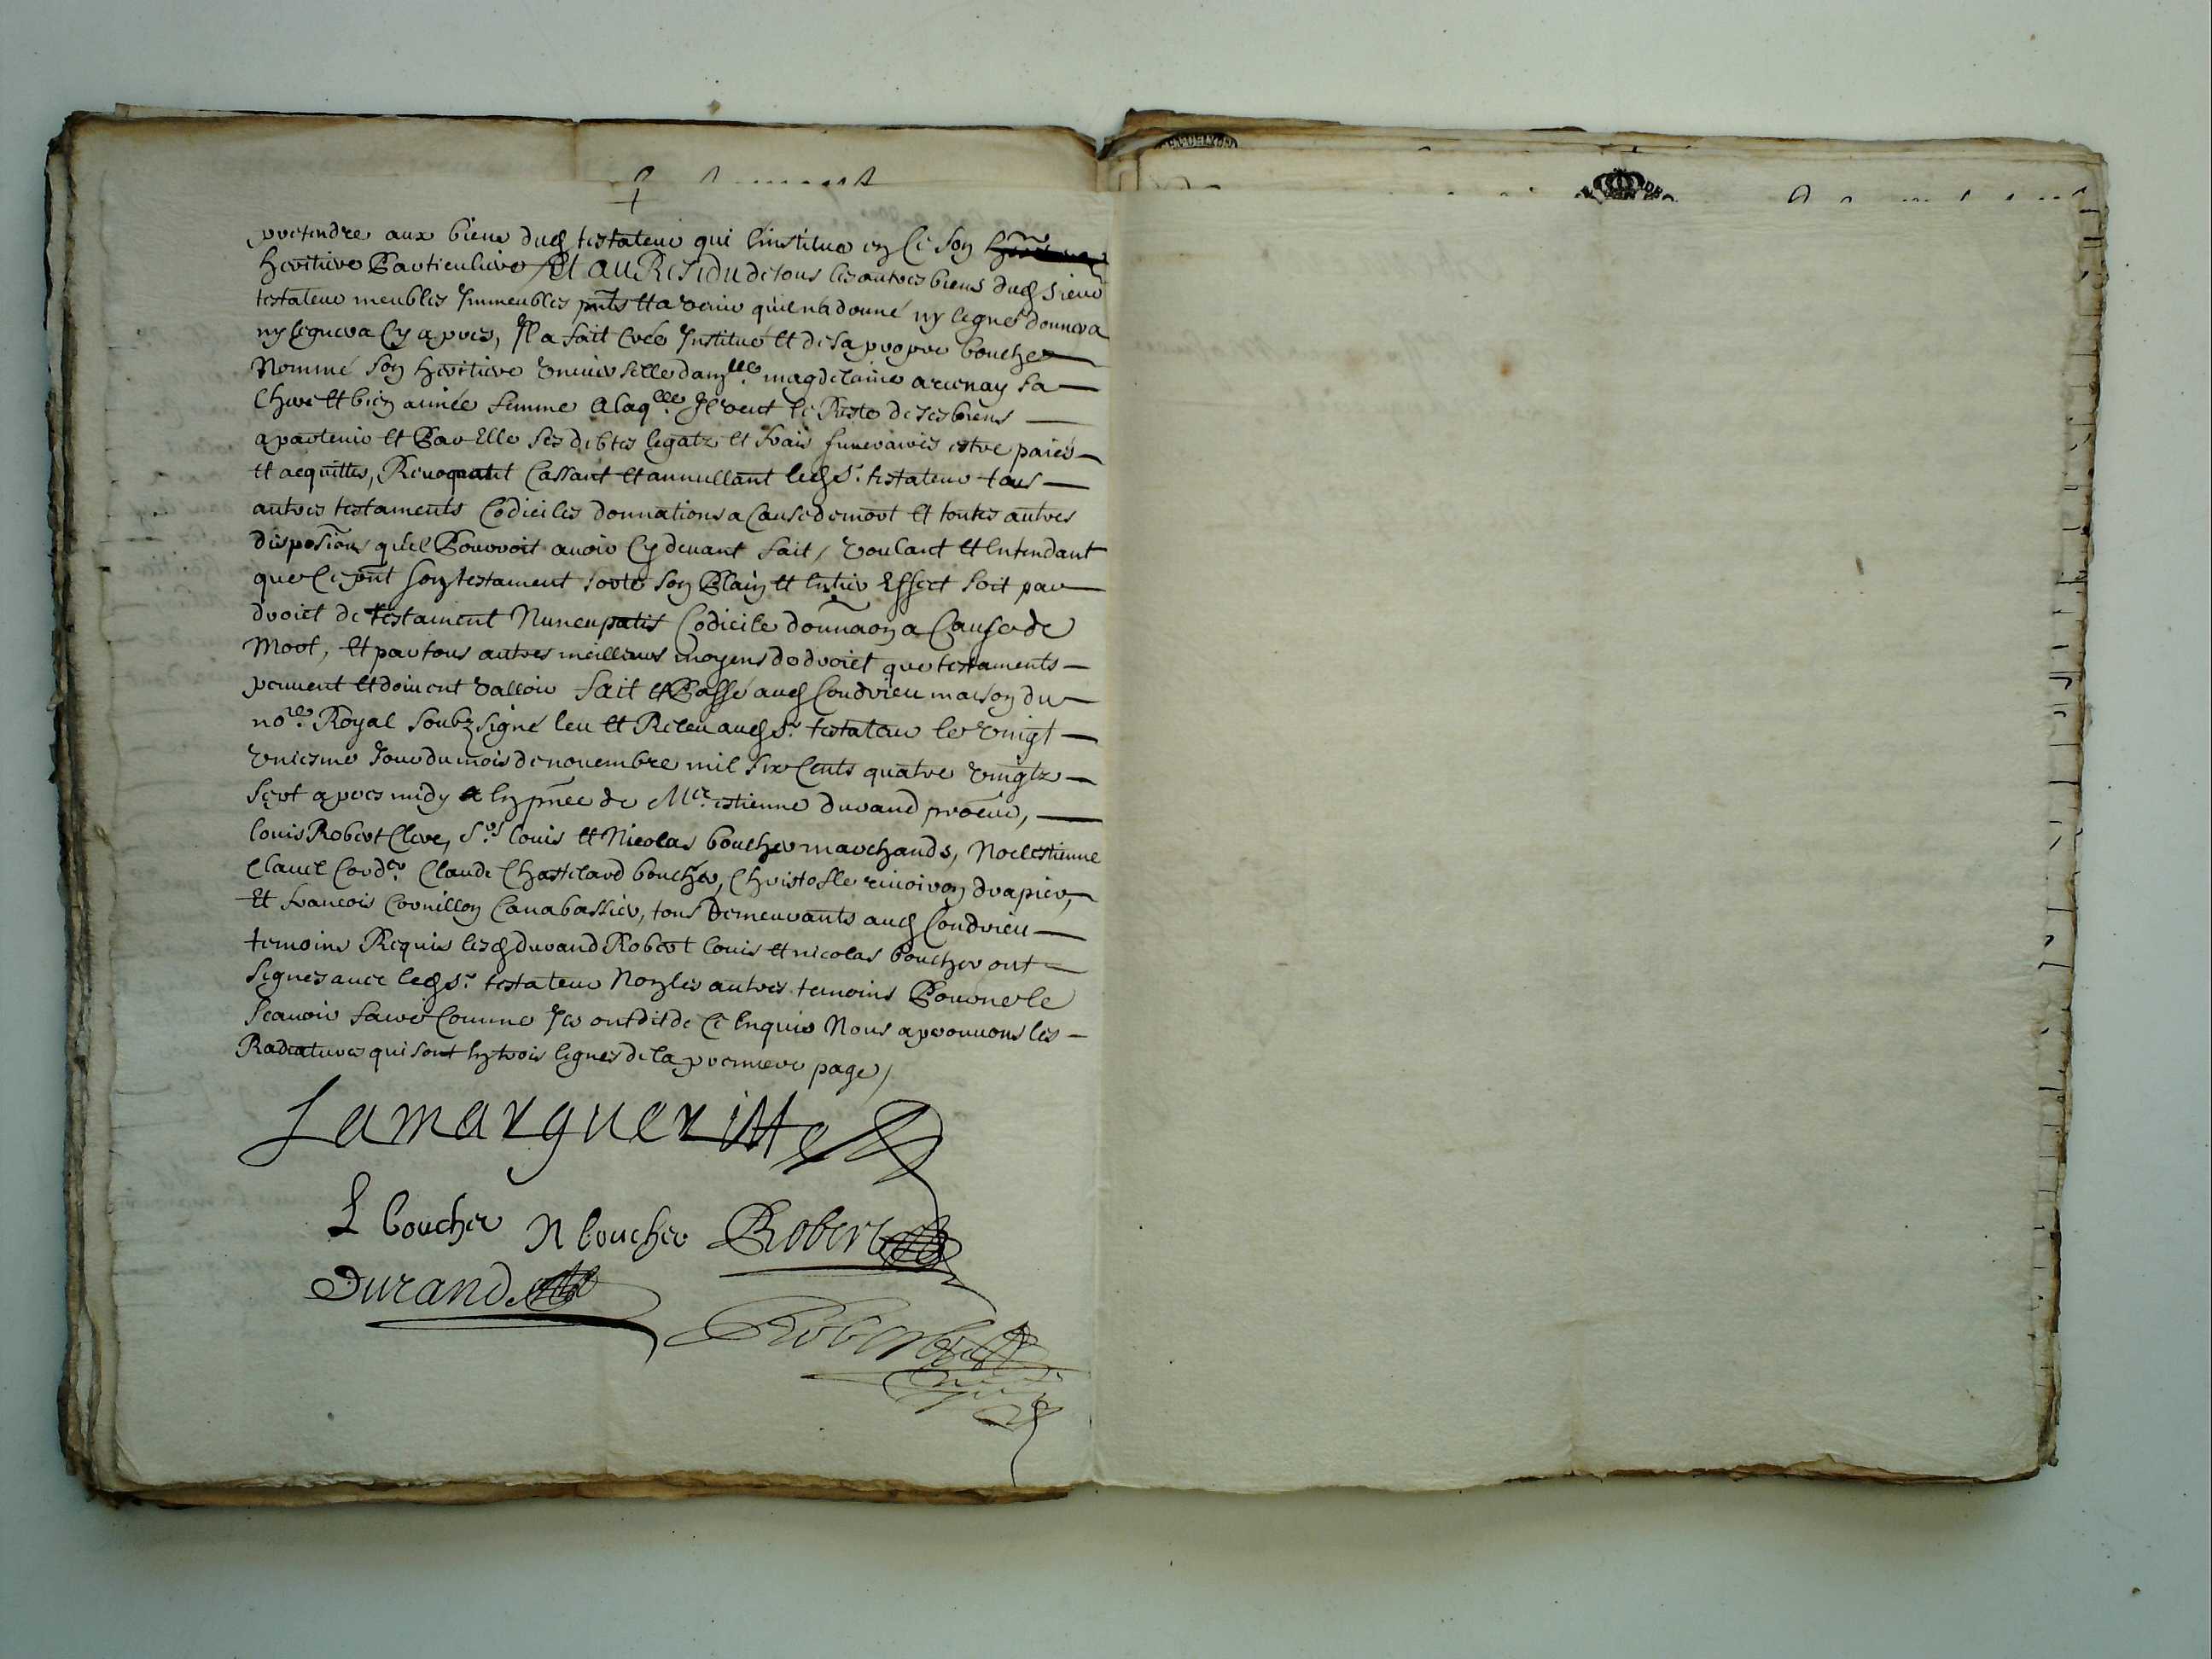 pretendre aux biens dud testateur qui l'institue en ce son
heritiere Particuliere Et au Residu de tous les autres biens dud sieur
testateur meubles Immeubles pnts et a venir qu'il n'a donné ny legué donnera
ny leguera Cy apres, Il a fait Creé Institué et de sa propre bouche
Nommé son heritiere universelle damlle magdelaine arenay sa
Chere et bien aimée femme a laqlle Il veut le Reste de ses biens
apartenir et Par Elle ses debtes legatz et frais funeraires estre paiés
et acquittés, Revoquant Cassant et annullant ledsr testateur tous
autres testaments Codiciles donnations a Cause de mort et toutes autres
dispositions qu'il Pourroit avoir Cy devant fait, voulant et Entendant
que Ce pnt son testament sorte son Plain et Entier Effect soit par
droict de testament Nuncupatif Codicile donnaon a Cause de
Mort, et par tous autres meilleurs moyens de droict que testaments
peuvent et doivent valloir fait et Passé aud Condrieu maison du
nore Royal soubzsigné leu et Releu aud sr testateur le vingt
uniesme Jour du mois de novembre mil six Cents quatre vingtz
sept apres midy En pnce de Mre estienne durand procur,
louis Robert Clerc, srs louis et Nicolas boucher marchands, Noel estienne
Clavel Cordr Claude Chastelard boucher, Christofle drapier,
Et francois Cornillon Canabassier, tous demeurants aud Condrieu
temoins Requis lesd durand Robert louis et nicolas boucher ont
signés avec led sr testateur Non les autres temoins Pour ne le
scavoir faire Comme Ils ont dit de Ce Enquis Nous aprouvons les
Radiatures qui sont En trois lignes de la premiere page,
Lamargueritte
L boucher N boucher Robert
Durand
Robert